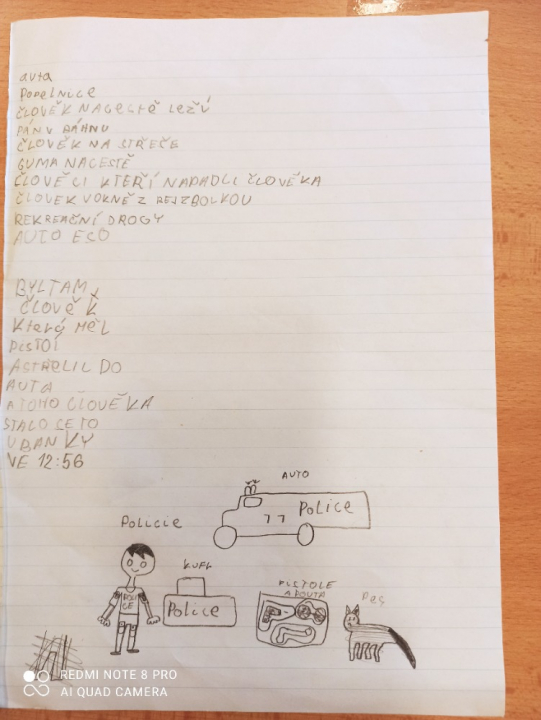 auta
popelnice
ČLOVĚK NACESTĚ LEŽÍ
PÁN V BÁHNU
ČLOVĚK NA STŘEČE
GUMA NACESTĚ
ČLOVĚCI KTEŘÍ NAPADLI ČLOVĚKA
ČLOVĚK VOKNĚ Z BEJZBOLKOU
REKREAČNÍ DROGY
AUTO ESO
BYLTAM
ČLOVĚK
Který MĚL
PISTOI
ASTŘELIL DO
AUTA
A TOHO ČLOVĚKA
STALO SE TO
U BANKY
VE 12:56
AUTO
POLICE
77
POLICIE
KUFR
POLI
CE
POLICE
PISTOLE
A POUTA
Pes
REDMI NOTE 8 PRO
AI QUAD CAMERA